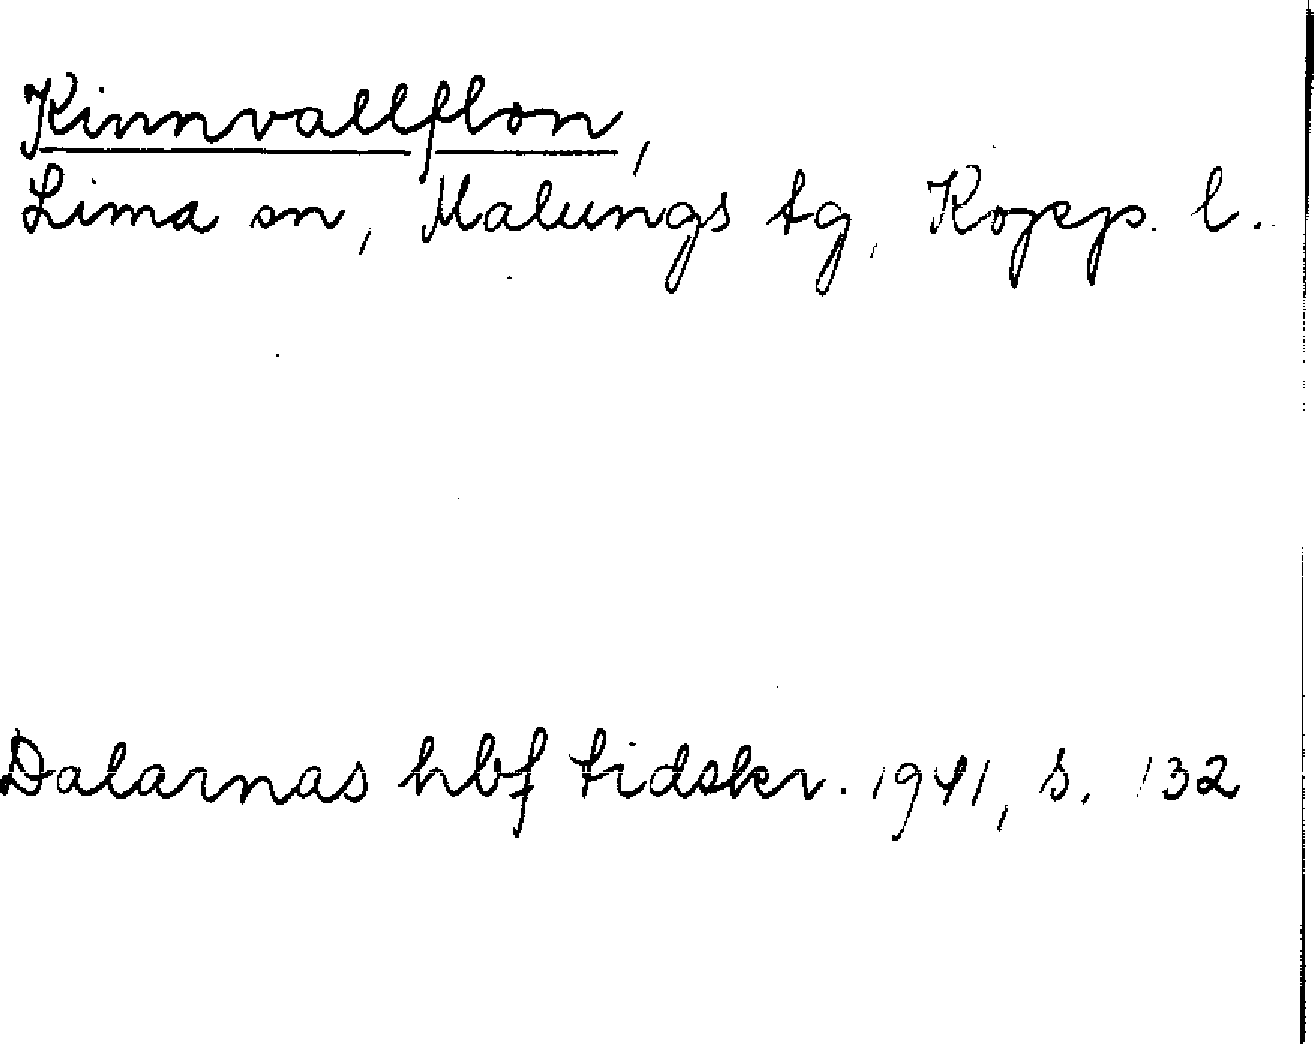 Kinnvallflon,
Lima sn, Malungs tg, Kopp. l.
Dalarnas hbf tidskr. 1941, s. 132